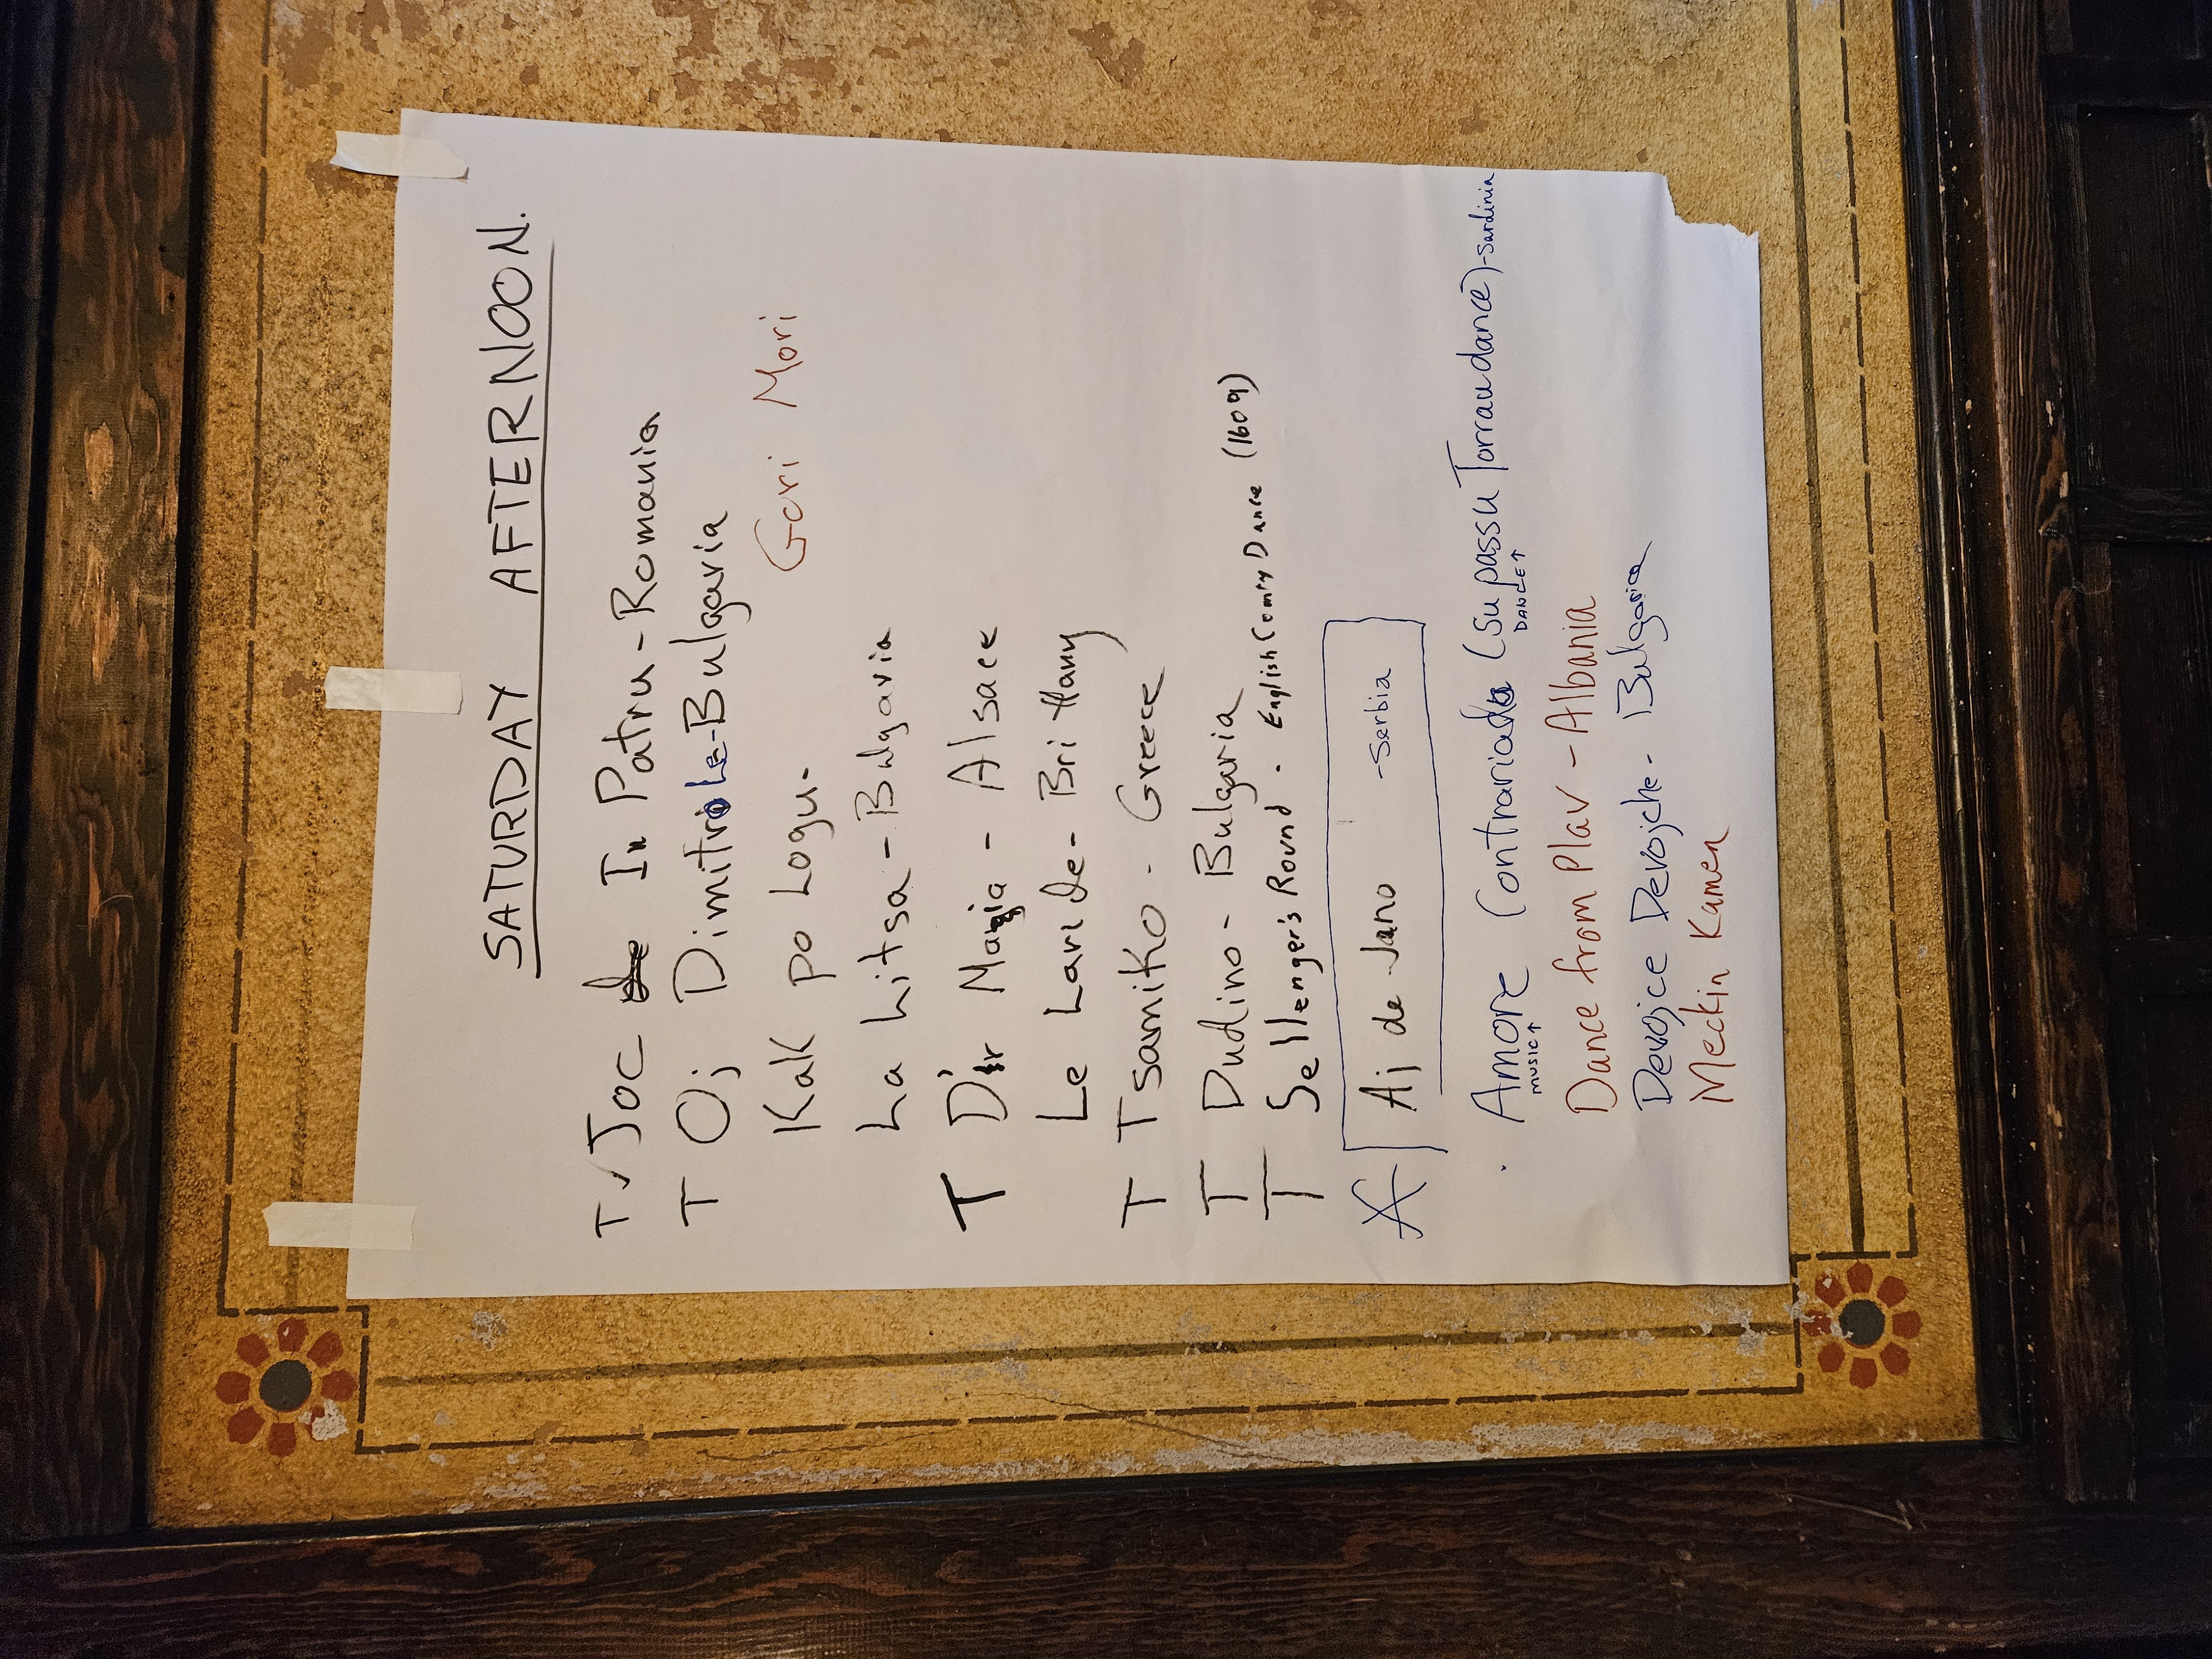 SATURDAY AFTERNOON.
T ✓ Joc In Patru - Romania
T Oj Dimitrole - Bulgaria
Kak po Logu - Gori Mori
La Litsa - Bulgaria
T D'r Maxia - Alsace
Le Laride - Brittany
T Tsamiko - Greece
T Dudino - Bulgaria
T Sellenger's Round. English Comtry Dance (1609)
Ajde Jano - Serbia
Amore Contrariada (Su passu Torraudance) - Sardinia
MUSIC↑ DANCE↑
Dance from Plav - Albania
Devojce Devojche - Bulgaria
Meckin Kamen